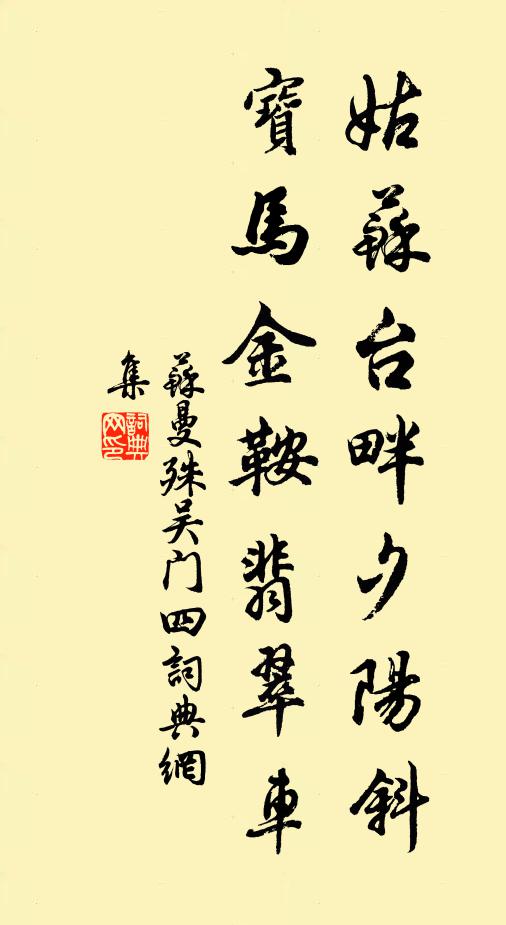 姑蘇台畔夕陽斜
寶馬金鞍翡翠車
蘇曼殊吴门四詞典網
集
詞典
网印